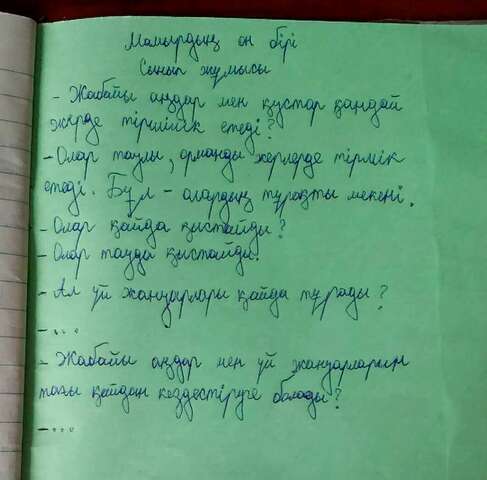 Мамырдың он бірі
Сынып жұмысы
- Жабайы аңдар мен құстар қандай
жерде тіршілік етеді?
- Олар таулы, орманды жерлерде тірлік
етеді. Бұл - олардың тұрақты мекені.
- Олар қайда қыстайды?
- Олар тауда қыстайды.
- Ал үй жануарлары қайда тұрады?
- ...
- Жабайы аңдар мен үй жануарларын
тағы қайдан кездестіруге болады?
- ...